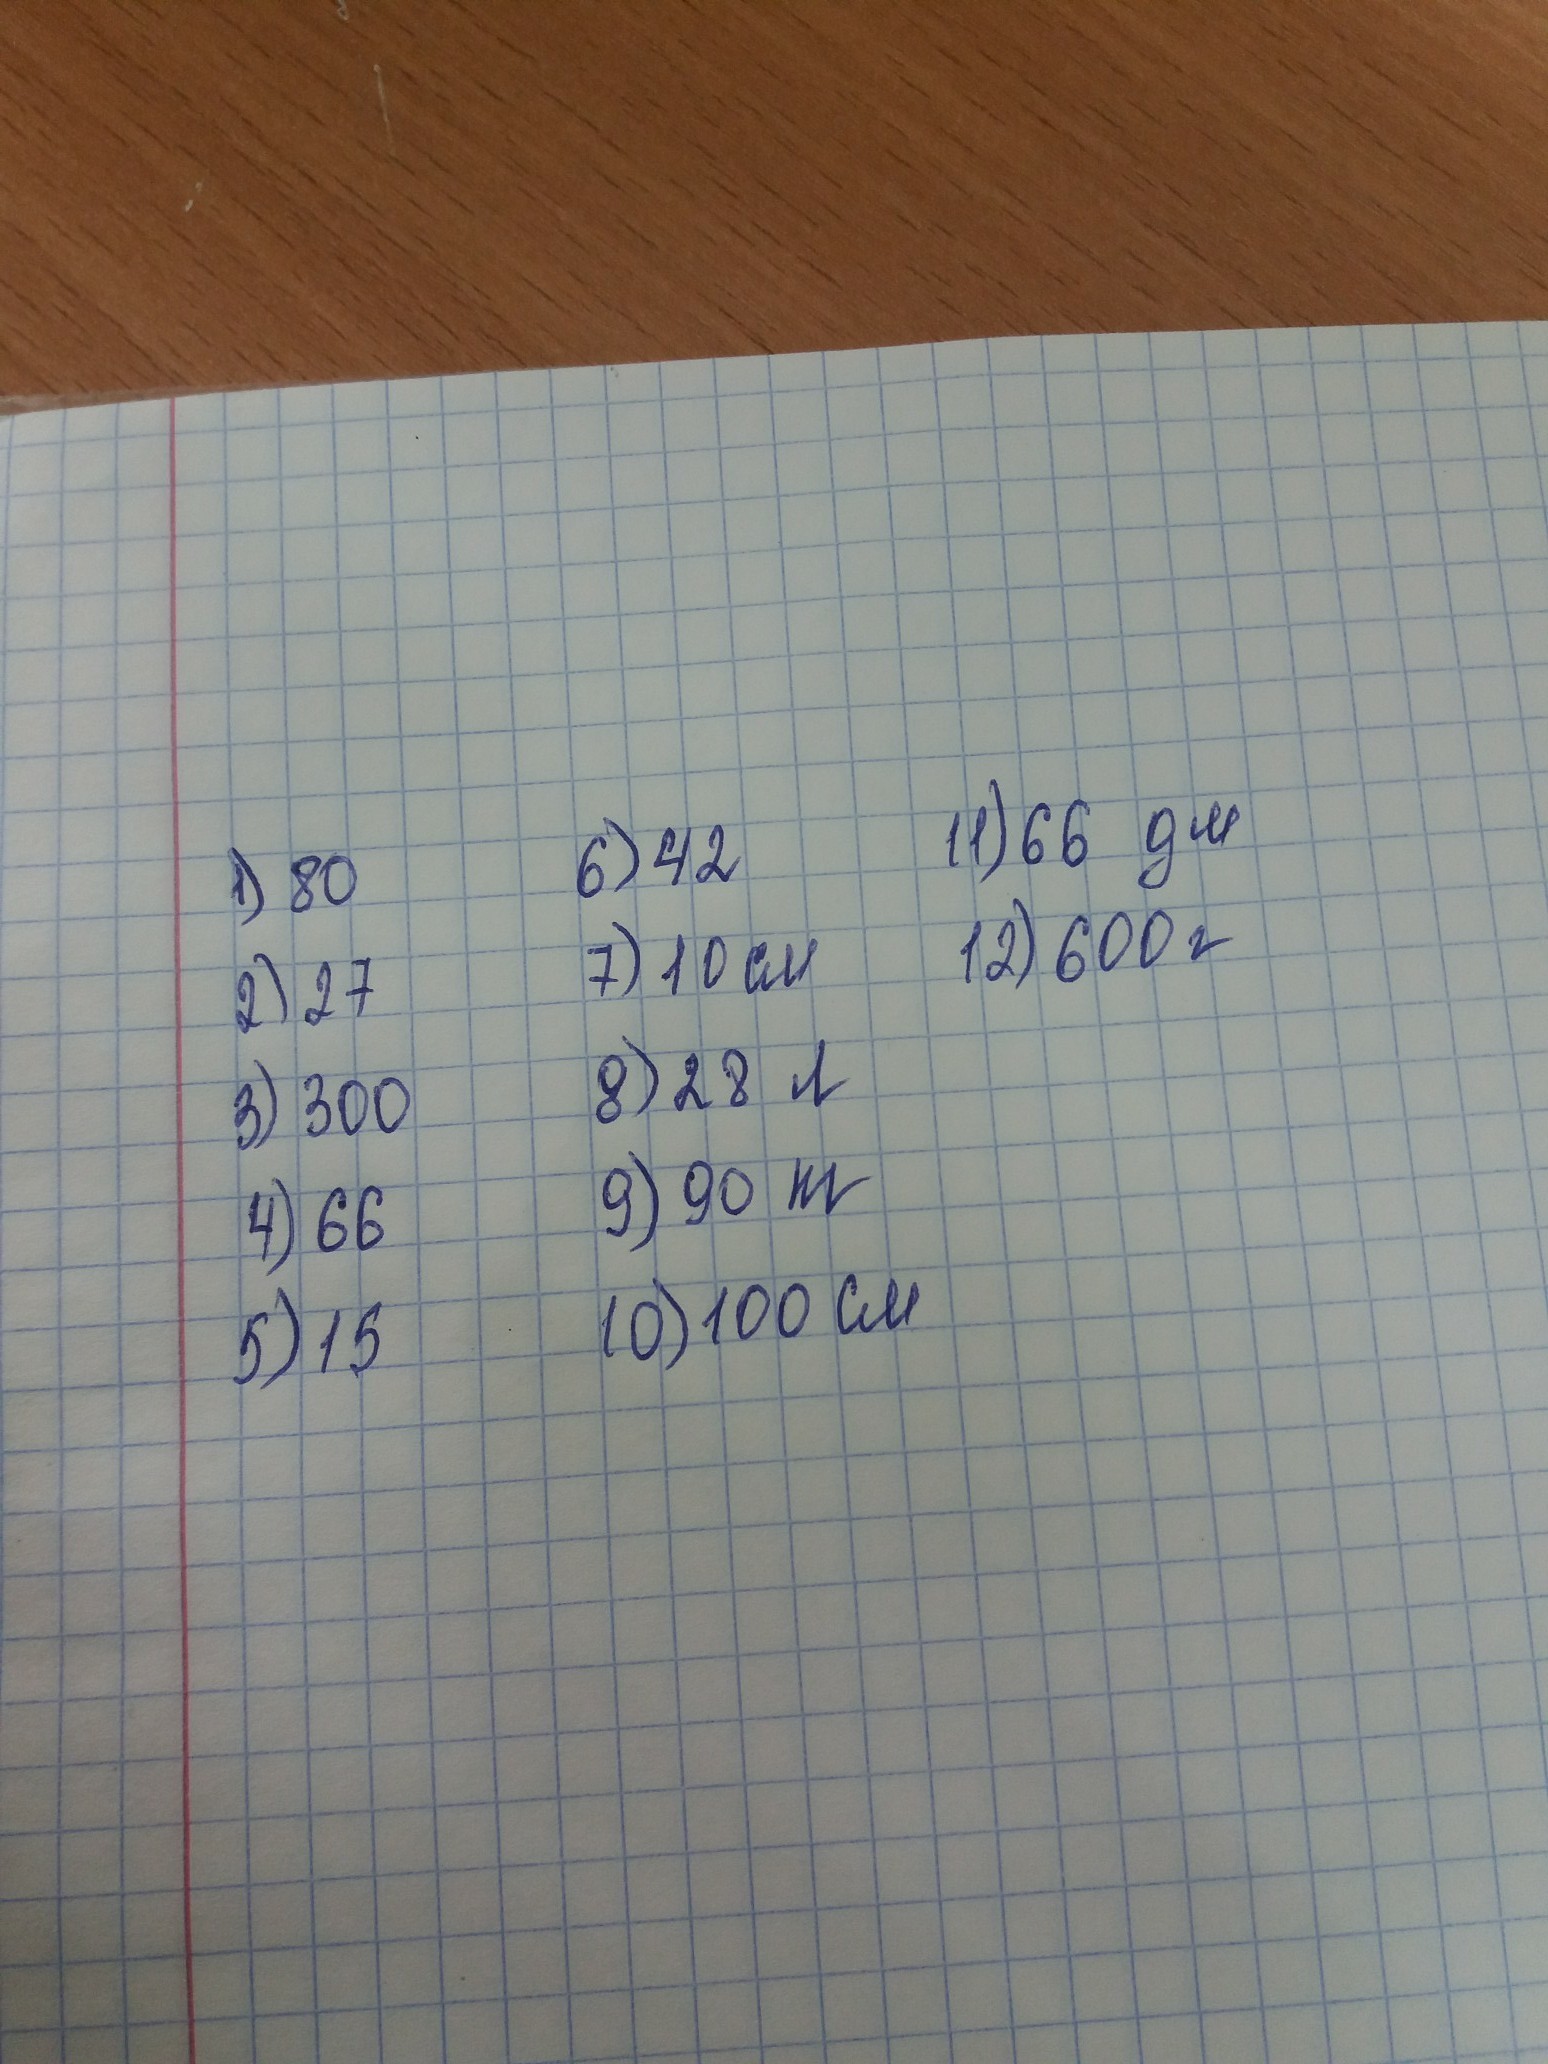 1) 80
2) 27
3) 300
4) 66
5) 15
6) 42
7) 10 см
8) 28 л
9) 90 кг
10) 100 см
11) 66 дм
12) 600 г